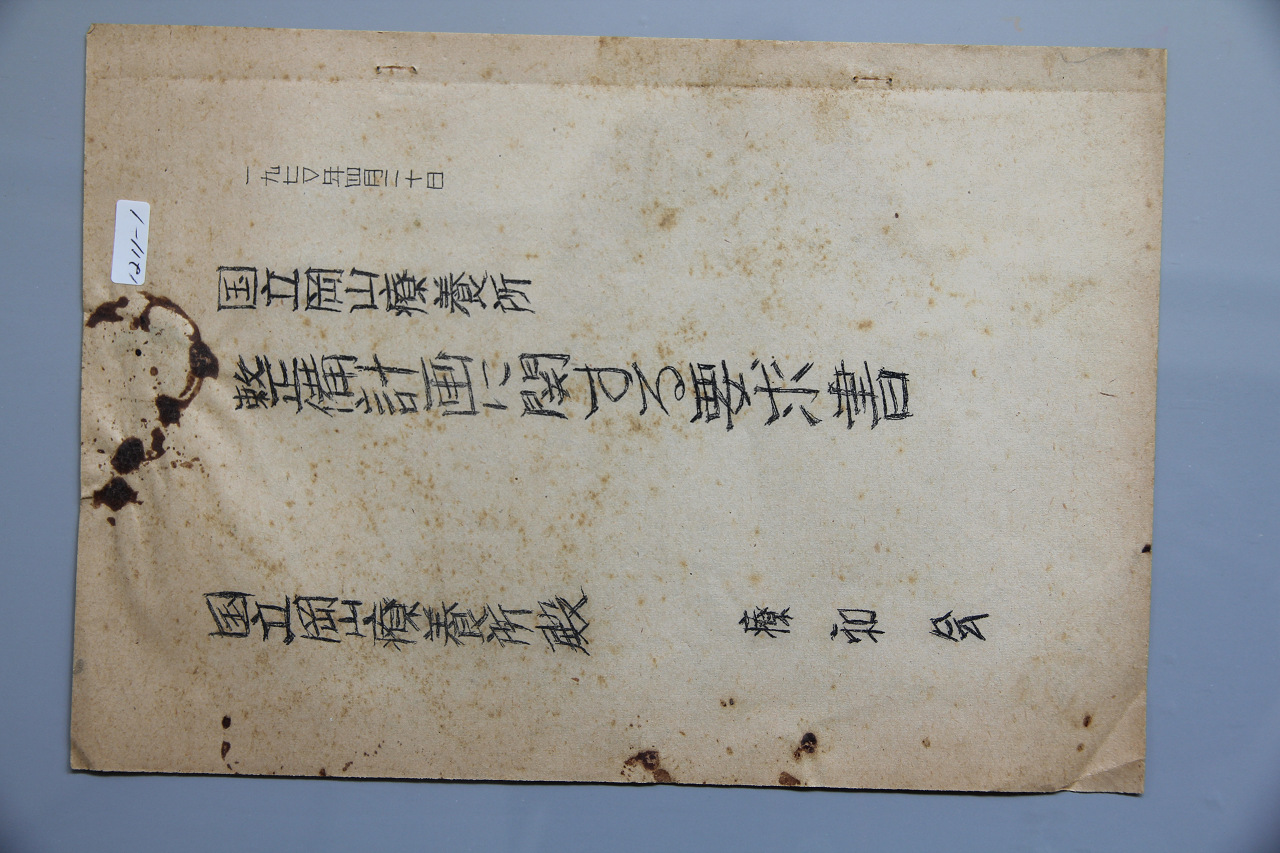 一九七〇年四月二十日
国立岡山療養所
整備計画に関する要求書
国立岡山療養所殿
療和会